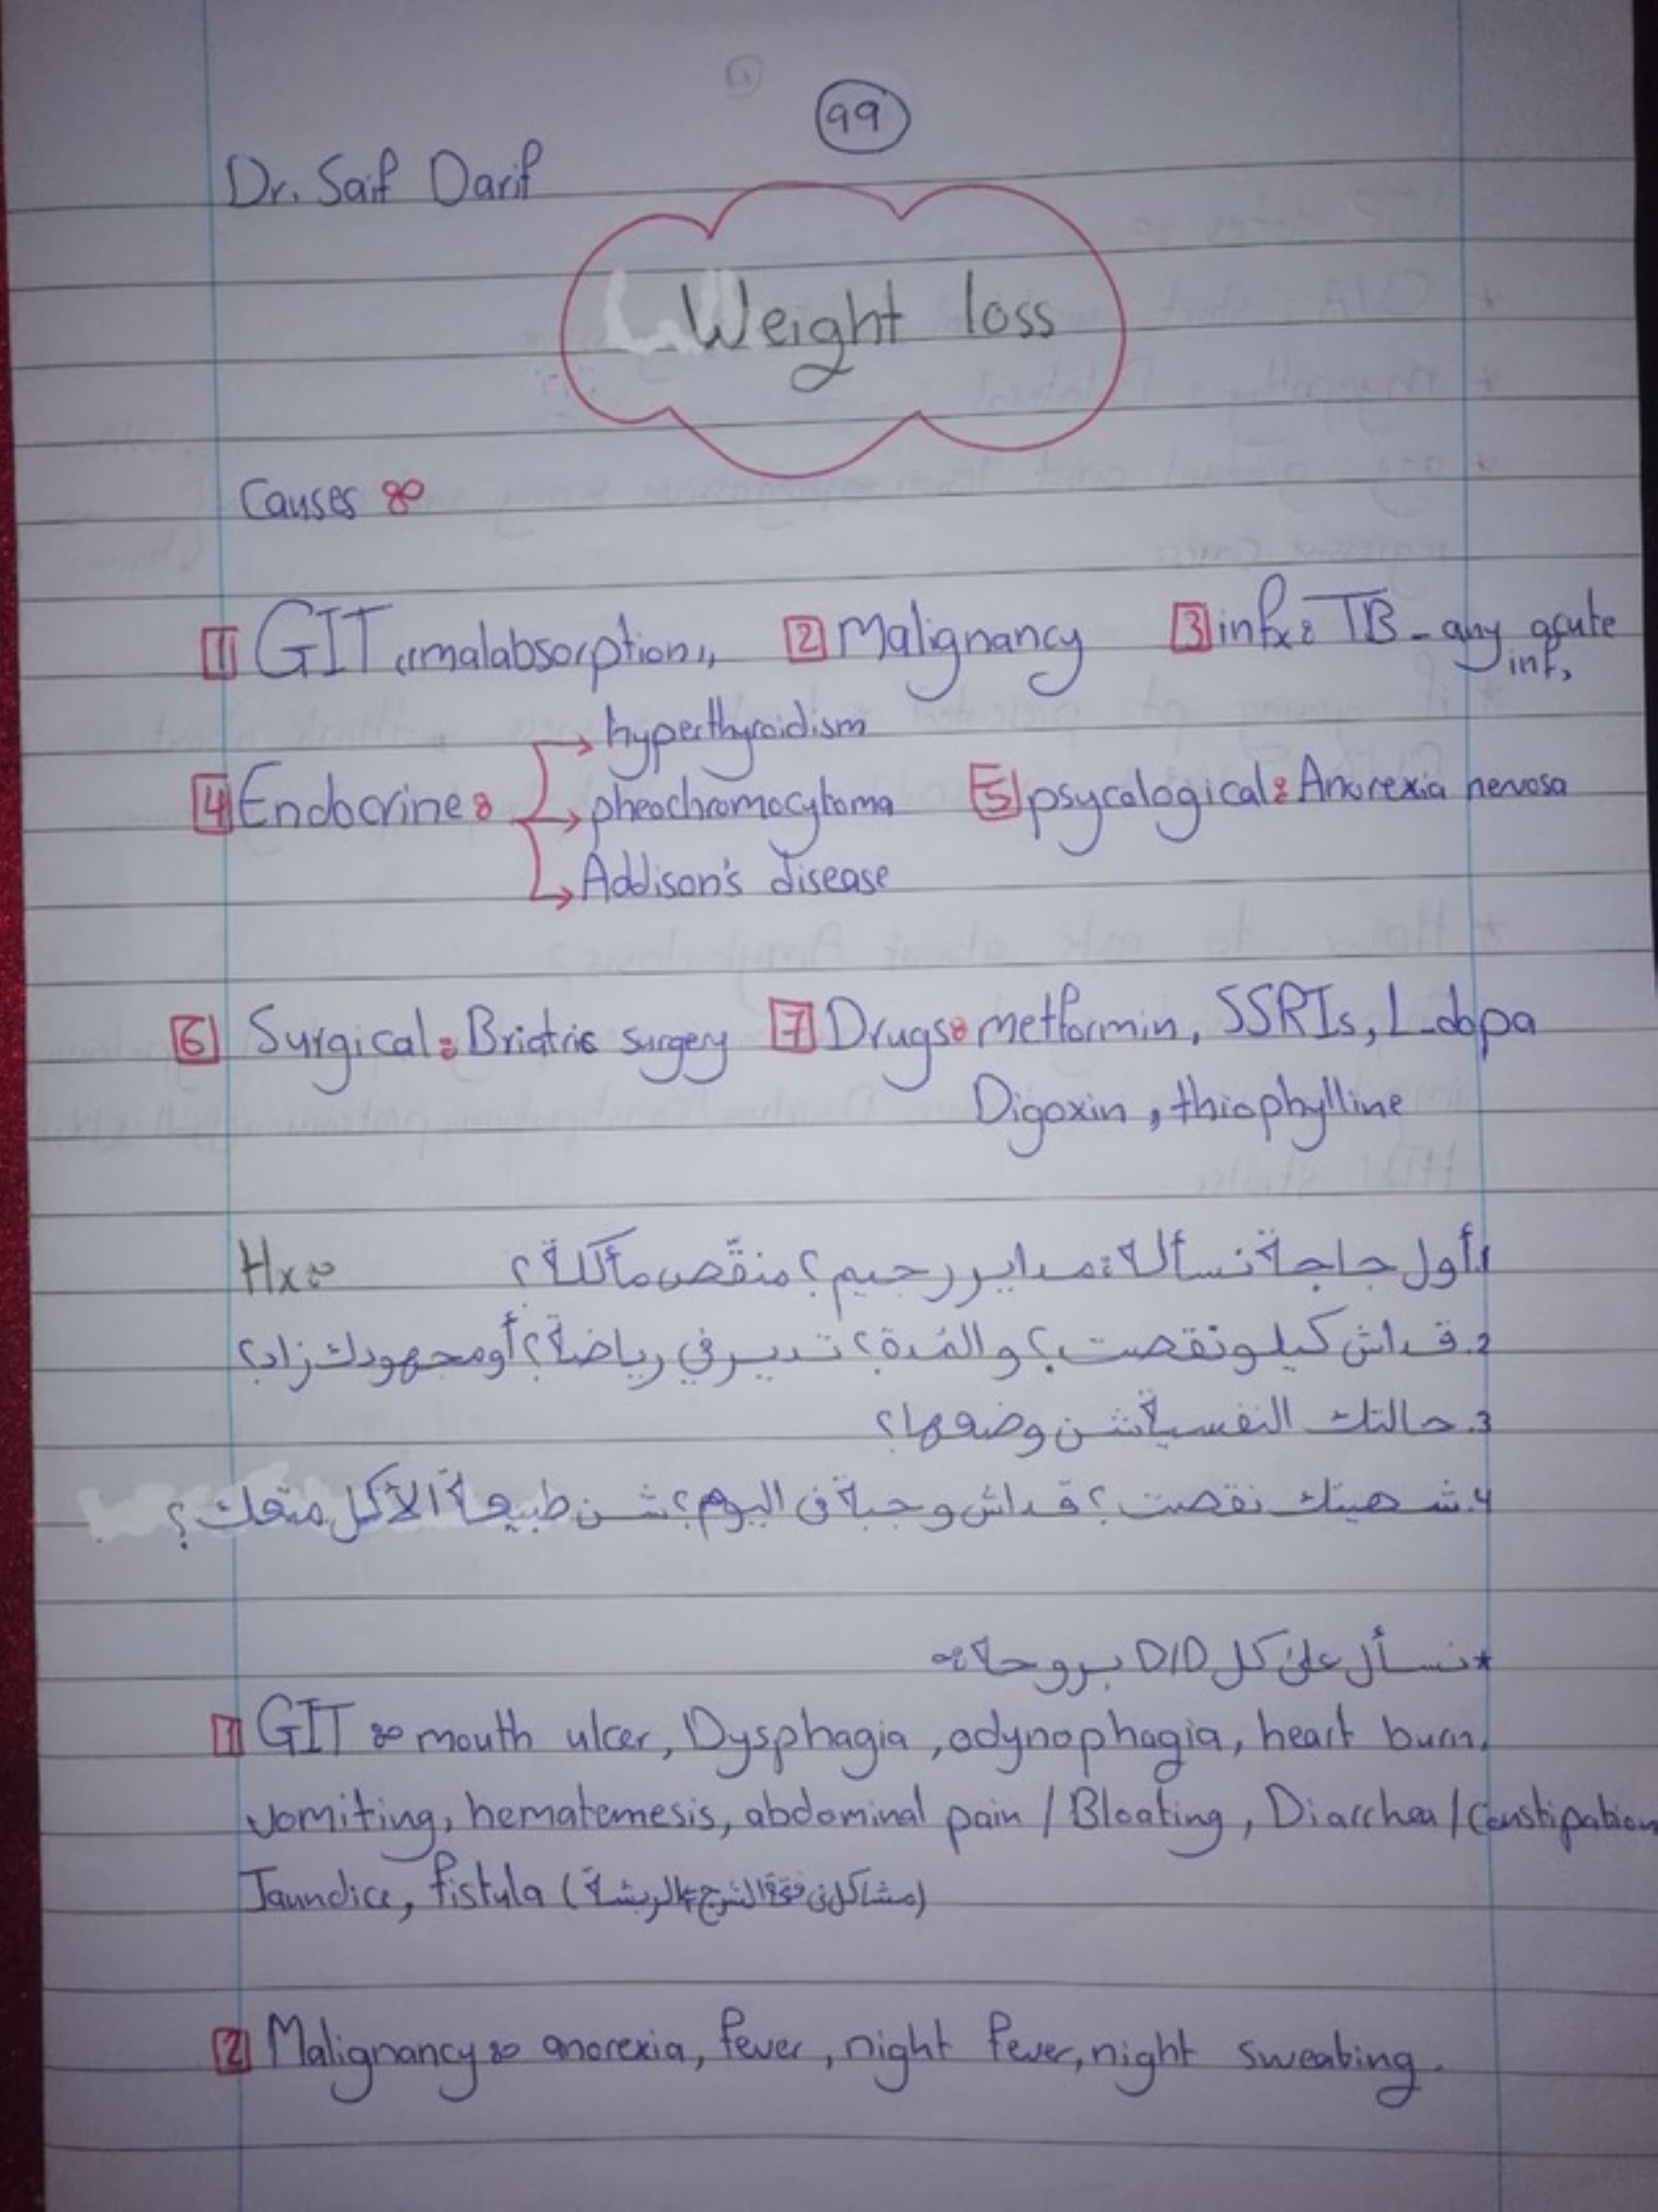 99
Dr. Saif Darif
Weight loss
Causes :
1 GIT "malabsorption" 2 Malignancy 3 infx: TB - any acute inf,
4 Endocrine: → hyperthyroidism
→ pheochromocytoma 5 psycological: Anorexia nervosa
→ Addison's disease
6 Surgical: Briatric surgery 7 Drugs: metformin, SSRIs, L-dopa
Digoxin, thiophylline
Hx: 1. أول حاجة نسأله: مداير رجيم؟ منقّص ماكلة؟
2. قداش كيلو نقصت؟ والمُدة؟ تدير في رياضة؟ أو مجهودك زاد؟
3. حالتك النفسية شن وضعها؟
4. شهيتك نقصت؟ قداش وجبة في اليوم؟ شن طبيعة الأكل متعك؟
*نسأل على كل D/D بروحه:
1 GIT : mouth ulcer, Dysphagia, odynophagia, heart burn,
vomiting, hematemesis, abdominal pain / Bloating, Diarrhea / Constipation
Jaundice, fistula (مشاكل في فتحة الشرج كالريشة)
2 Malignancy: anorexia, fever, night fever, night sweating.